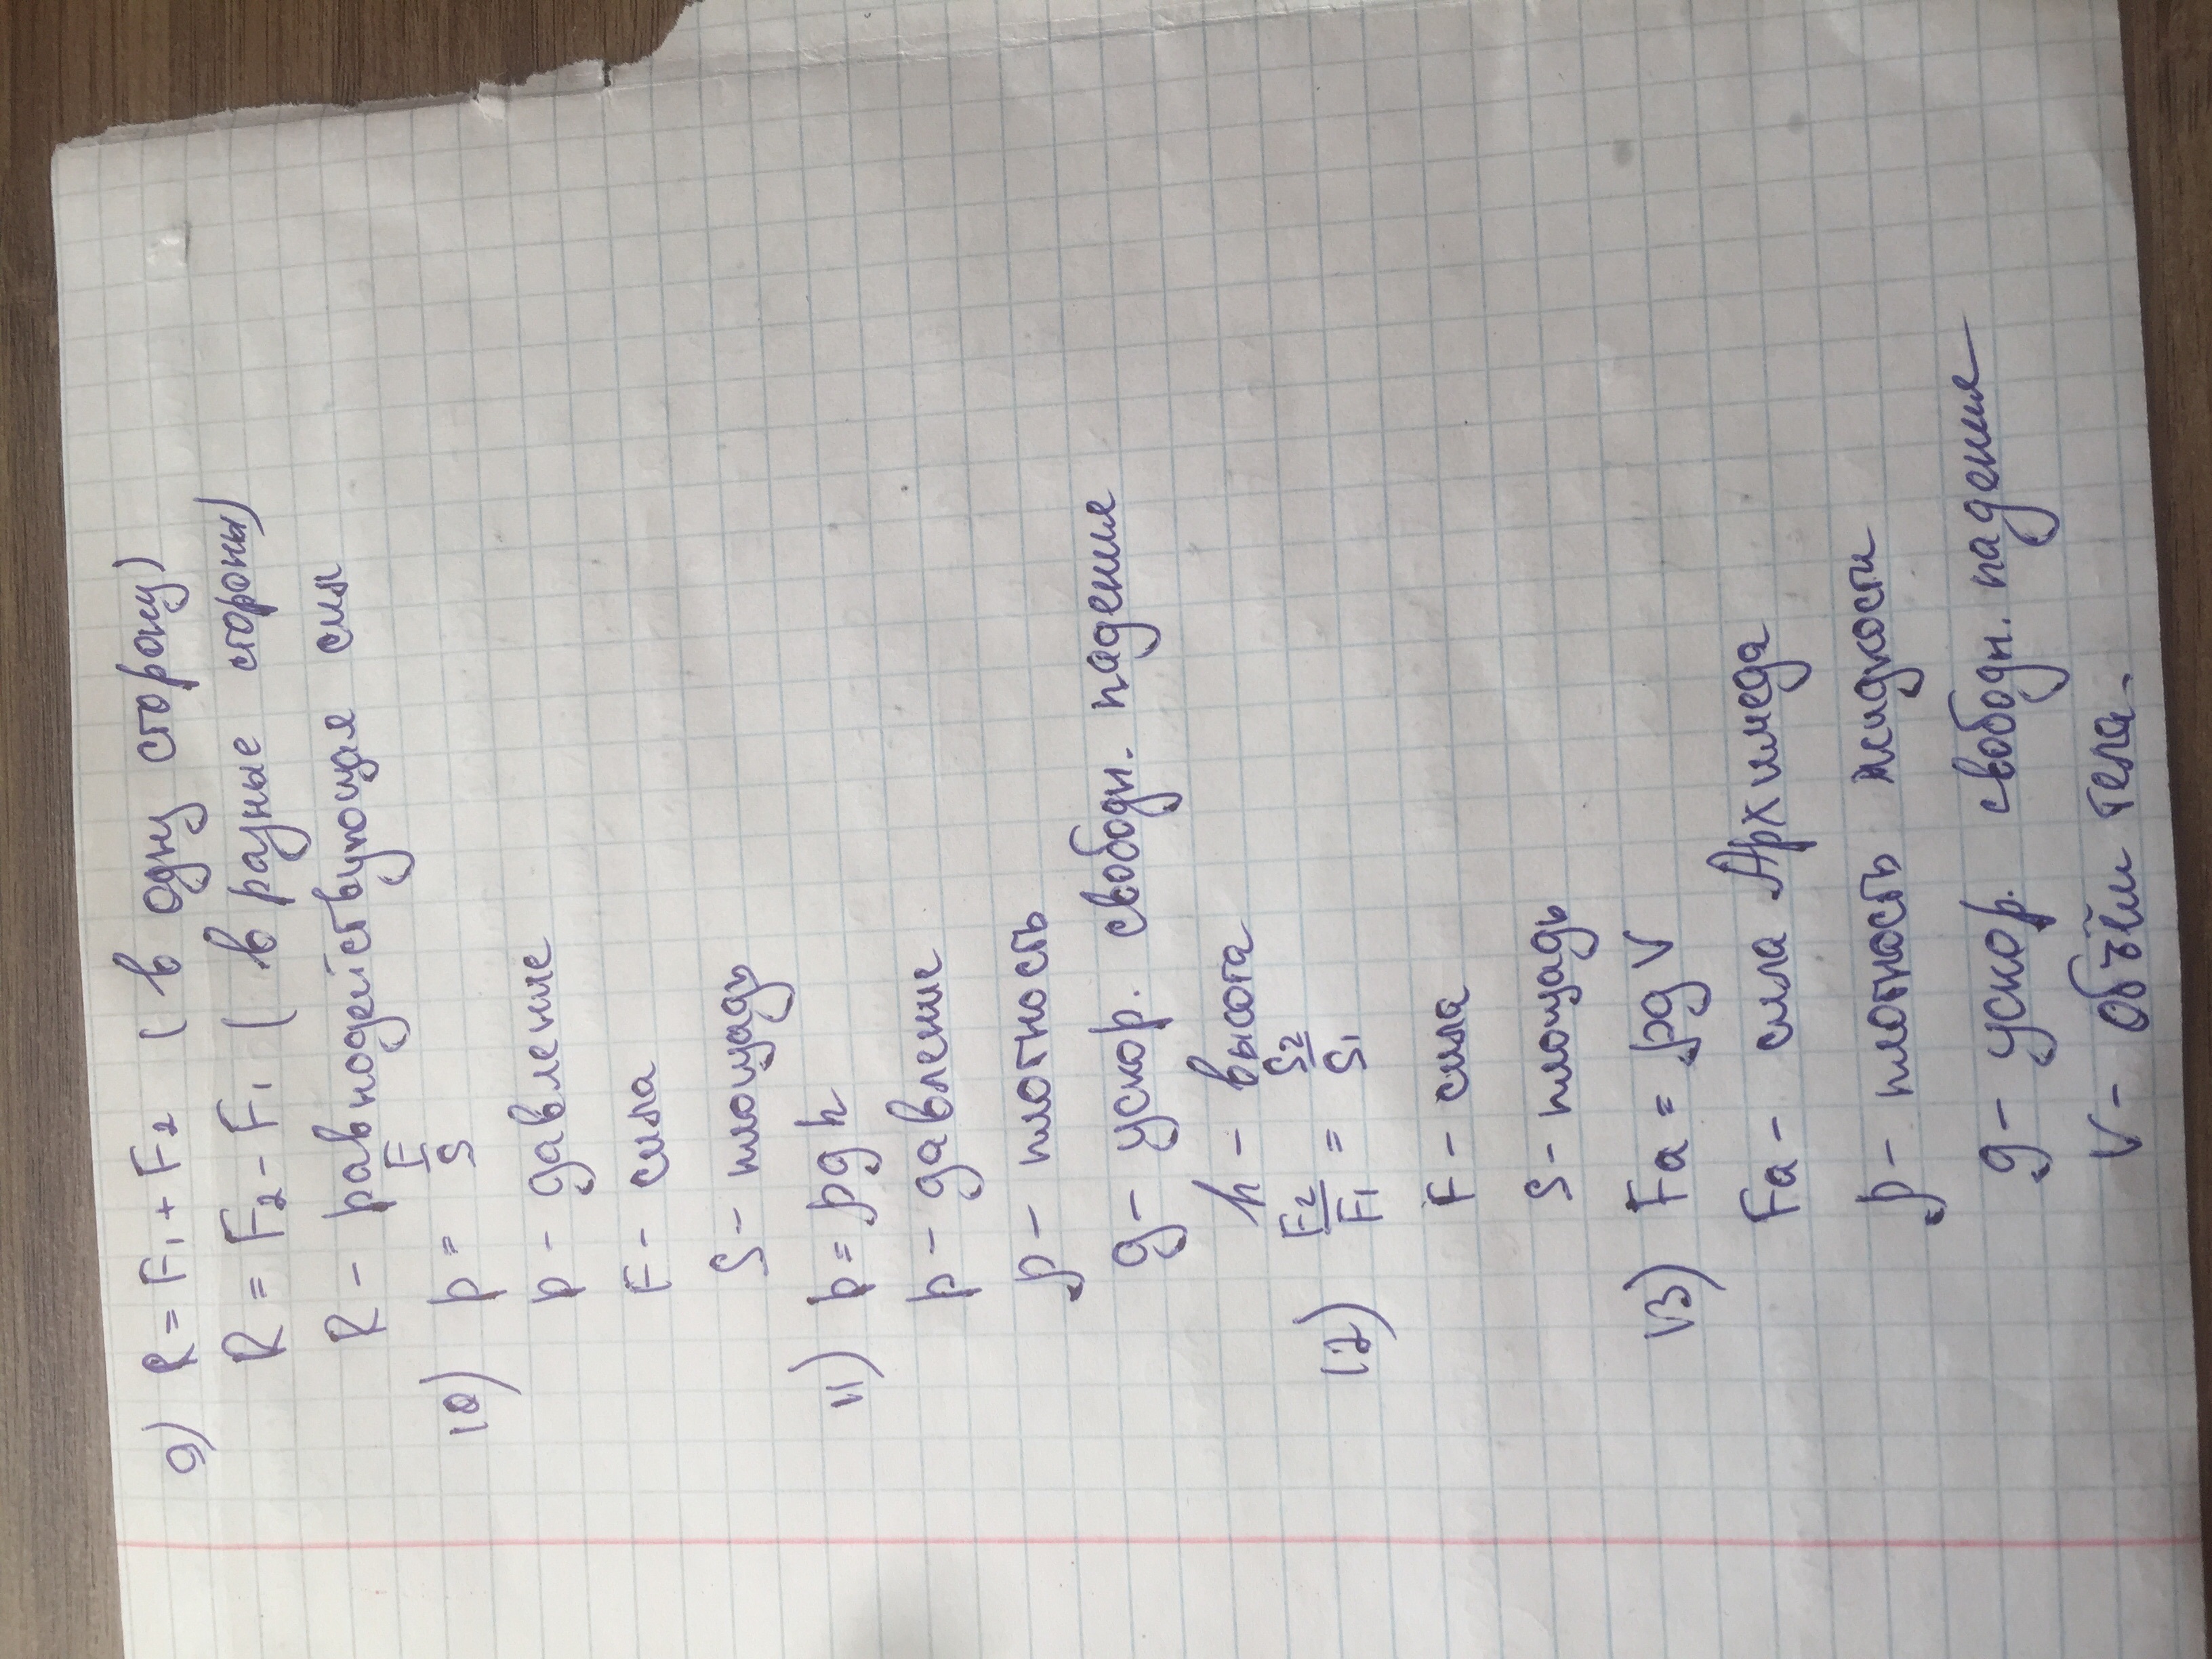 9) R = F₁ + F₂ (в одну сторону)
R = F₂ - F₁ (в разные стороны)
R - равнодействующая сил
10) p = F/S
p - давление
F - сила
S - площадь
11) p = ρgh
p - давление
ρ - плотность
g - ускор. свободн. падение
h - высота
12) F₂/F₁ = S₂/S₁
F - сила
S - площадь
13) Fа = ρgV
Fа - сила Архимеда
ρ - плотность жидкости
g - ускор. свободн. падение
V - объём тела.